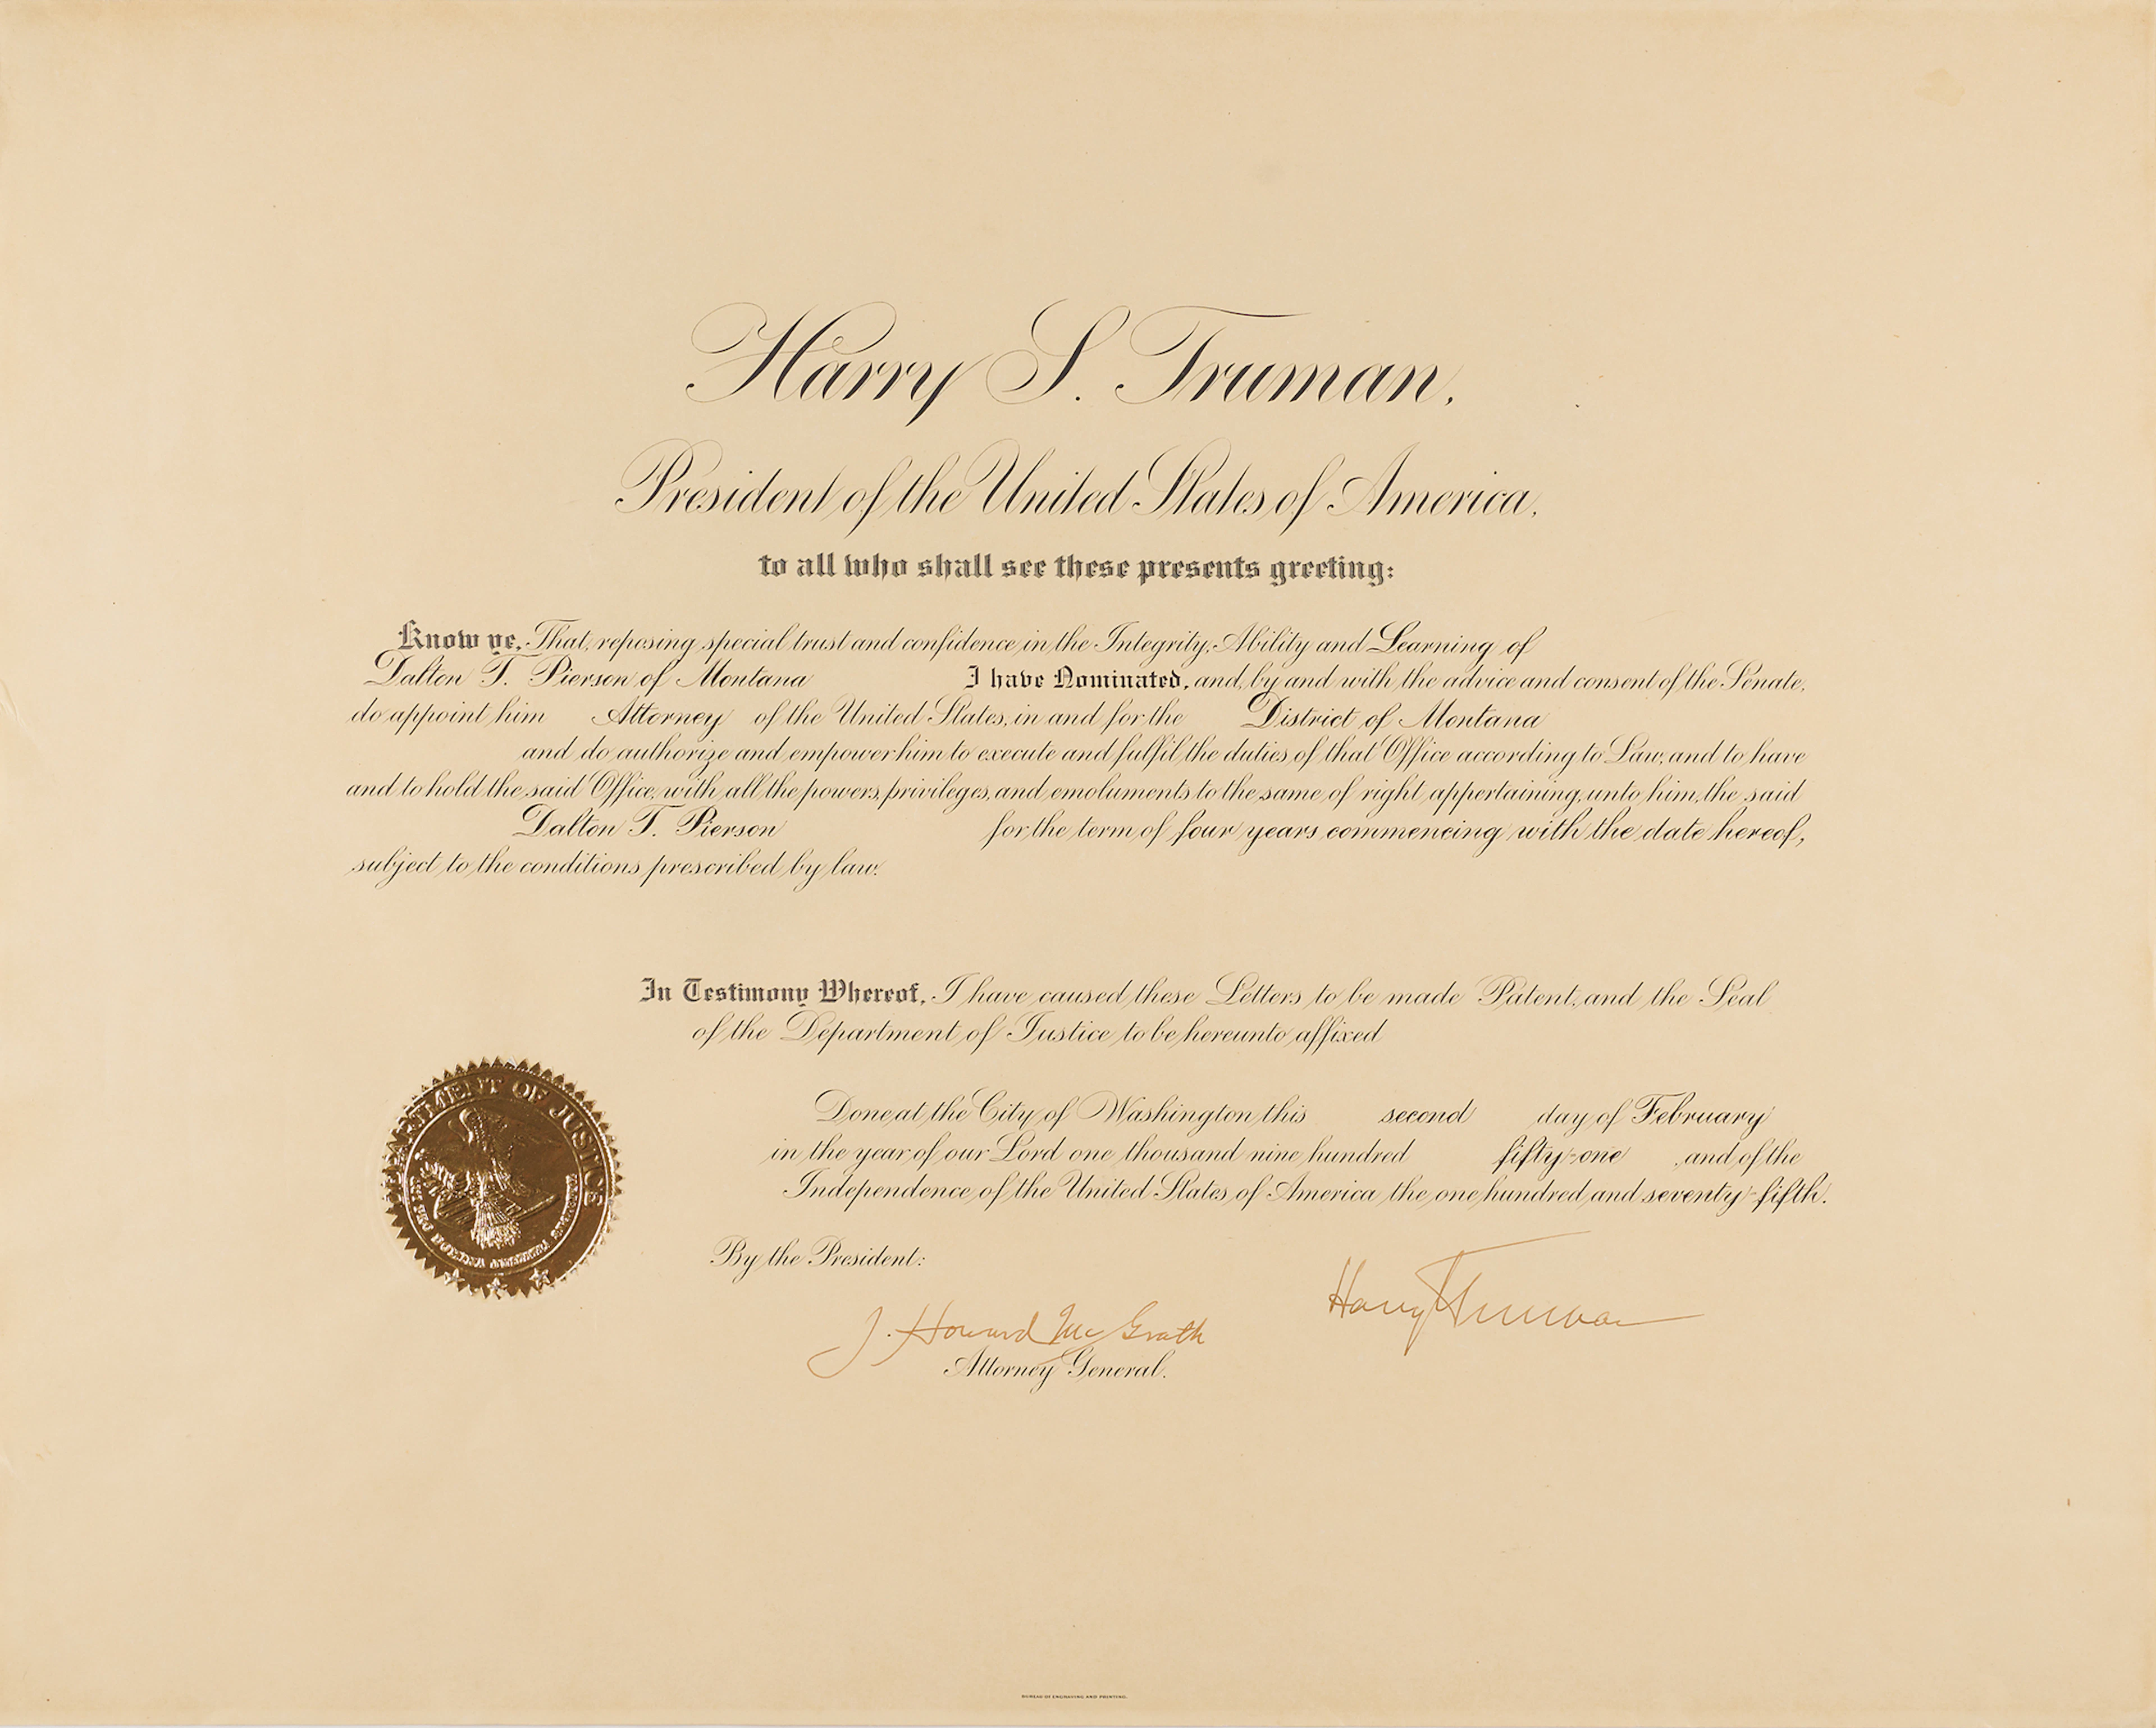 Harry S. Truman,
President of the United States of America,
to all who shall see these presents greeting:
Know ye, That, reposing special trust and confidence in the Integrity, Ability and Learning of
Dalton T. Pierson of Montana I have Nominated, and, by and with the advice and consent of the Senate,
do appoint him Attorney of the United States, in and for the District of Montana
and do authorize and empower him to execute and fulfil the duties of that Office according to Law, and to have
and to hold the said Office, with all the powers, privileges, and emoluments to the same of right appertaining, unto him, the said
Dalton T. Pierson for the term of four years commencing with the date hereof,
subject to the conditions prescribed by law.
In Testimony Whereof, I have caused these Letters to be made Patent, and the Seal
of the Department of Justice to be hereunto affixed
Done at the City of Washington this second day of February
in the year of our Lord one thousand nine hundred fifty-one , and of the
Independence of the United States of America the one hundred and seventy-fifth.
By the President:
Harry S Truman
J. Howard McGrath
Attorney General.
DEPARTMENT OF JUSTICE
QUI PRO DOMINA JUSTITIA SEQUITUR
BUREAU OF ENGRAVING AND PRINTING.